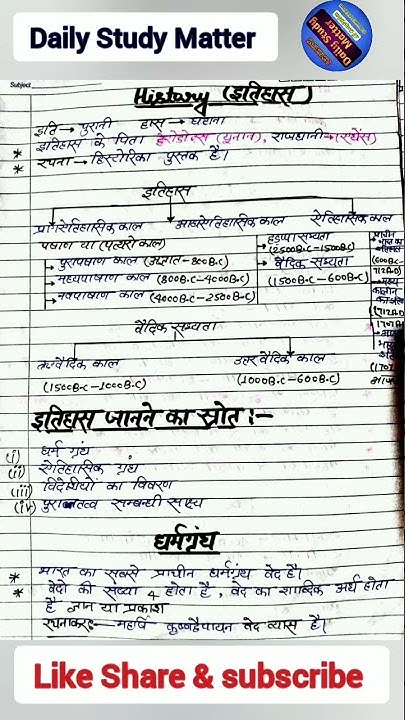 Daily Study Matter
Daily Study Matter
Subject
History (इतिहास)
इति → पुरानी हास → घटना
* इतिहास के पिता हेरोडोट्स (यूनान), राजधानी → (एथेंस)
* रचना → हिस्टोरिका पुस्तक है।
इतिहास
प्रागैतिहासिक काल आद्यऐतिहासिक काल ऐतिहासिक काल
पषाण या (पत्थरो काल)
→ पुरापषाण काल (अज्ञात - 800B.C)
→ मध्यपाषाण काल (800B.C-4000B.C)
→ नवपाषाण काल (4000B.C-2500B.C)
→ हडप्पा सभ्यता
(2500B.C-1500B.C)
→ वैदिक सभ्यता
(1500B.C-600B.C)
प्राचीन
(600B.C-
712AD)
→ मध्य
(712AD
वैदिक सभ्यता
ऋग्वैदिक काल उत्तर वैदिक काल
(1500B.C-1000B.C) (1000B.C-600B.C)
इतिहास जानने का स्रोत :-
(i) धर्म ग्रंथ
(ii) ऐतिहासिक ग्रंथ
(iii) विदेशीयों का विवरण
(iv) पुरातत्व सम्बन्धी साक्ष्य
धर्मग्रंथ
* भारत का सबसे प्राचीन धर्मग्रंथ वेद है।
* वेदो की संख्या 4 होता है, वेद का शाब्दिक अर्थ होता
है ज्ञान या प्रकाश
रचनाकार:- महर्षि कृष्णद्वैपायन वेद व्यास है।
Like Share & subscribe